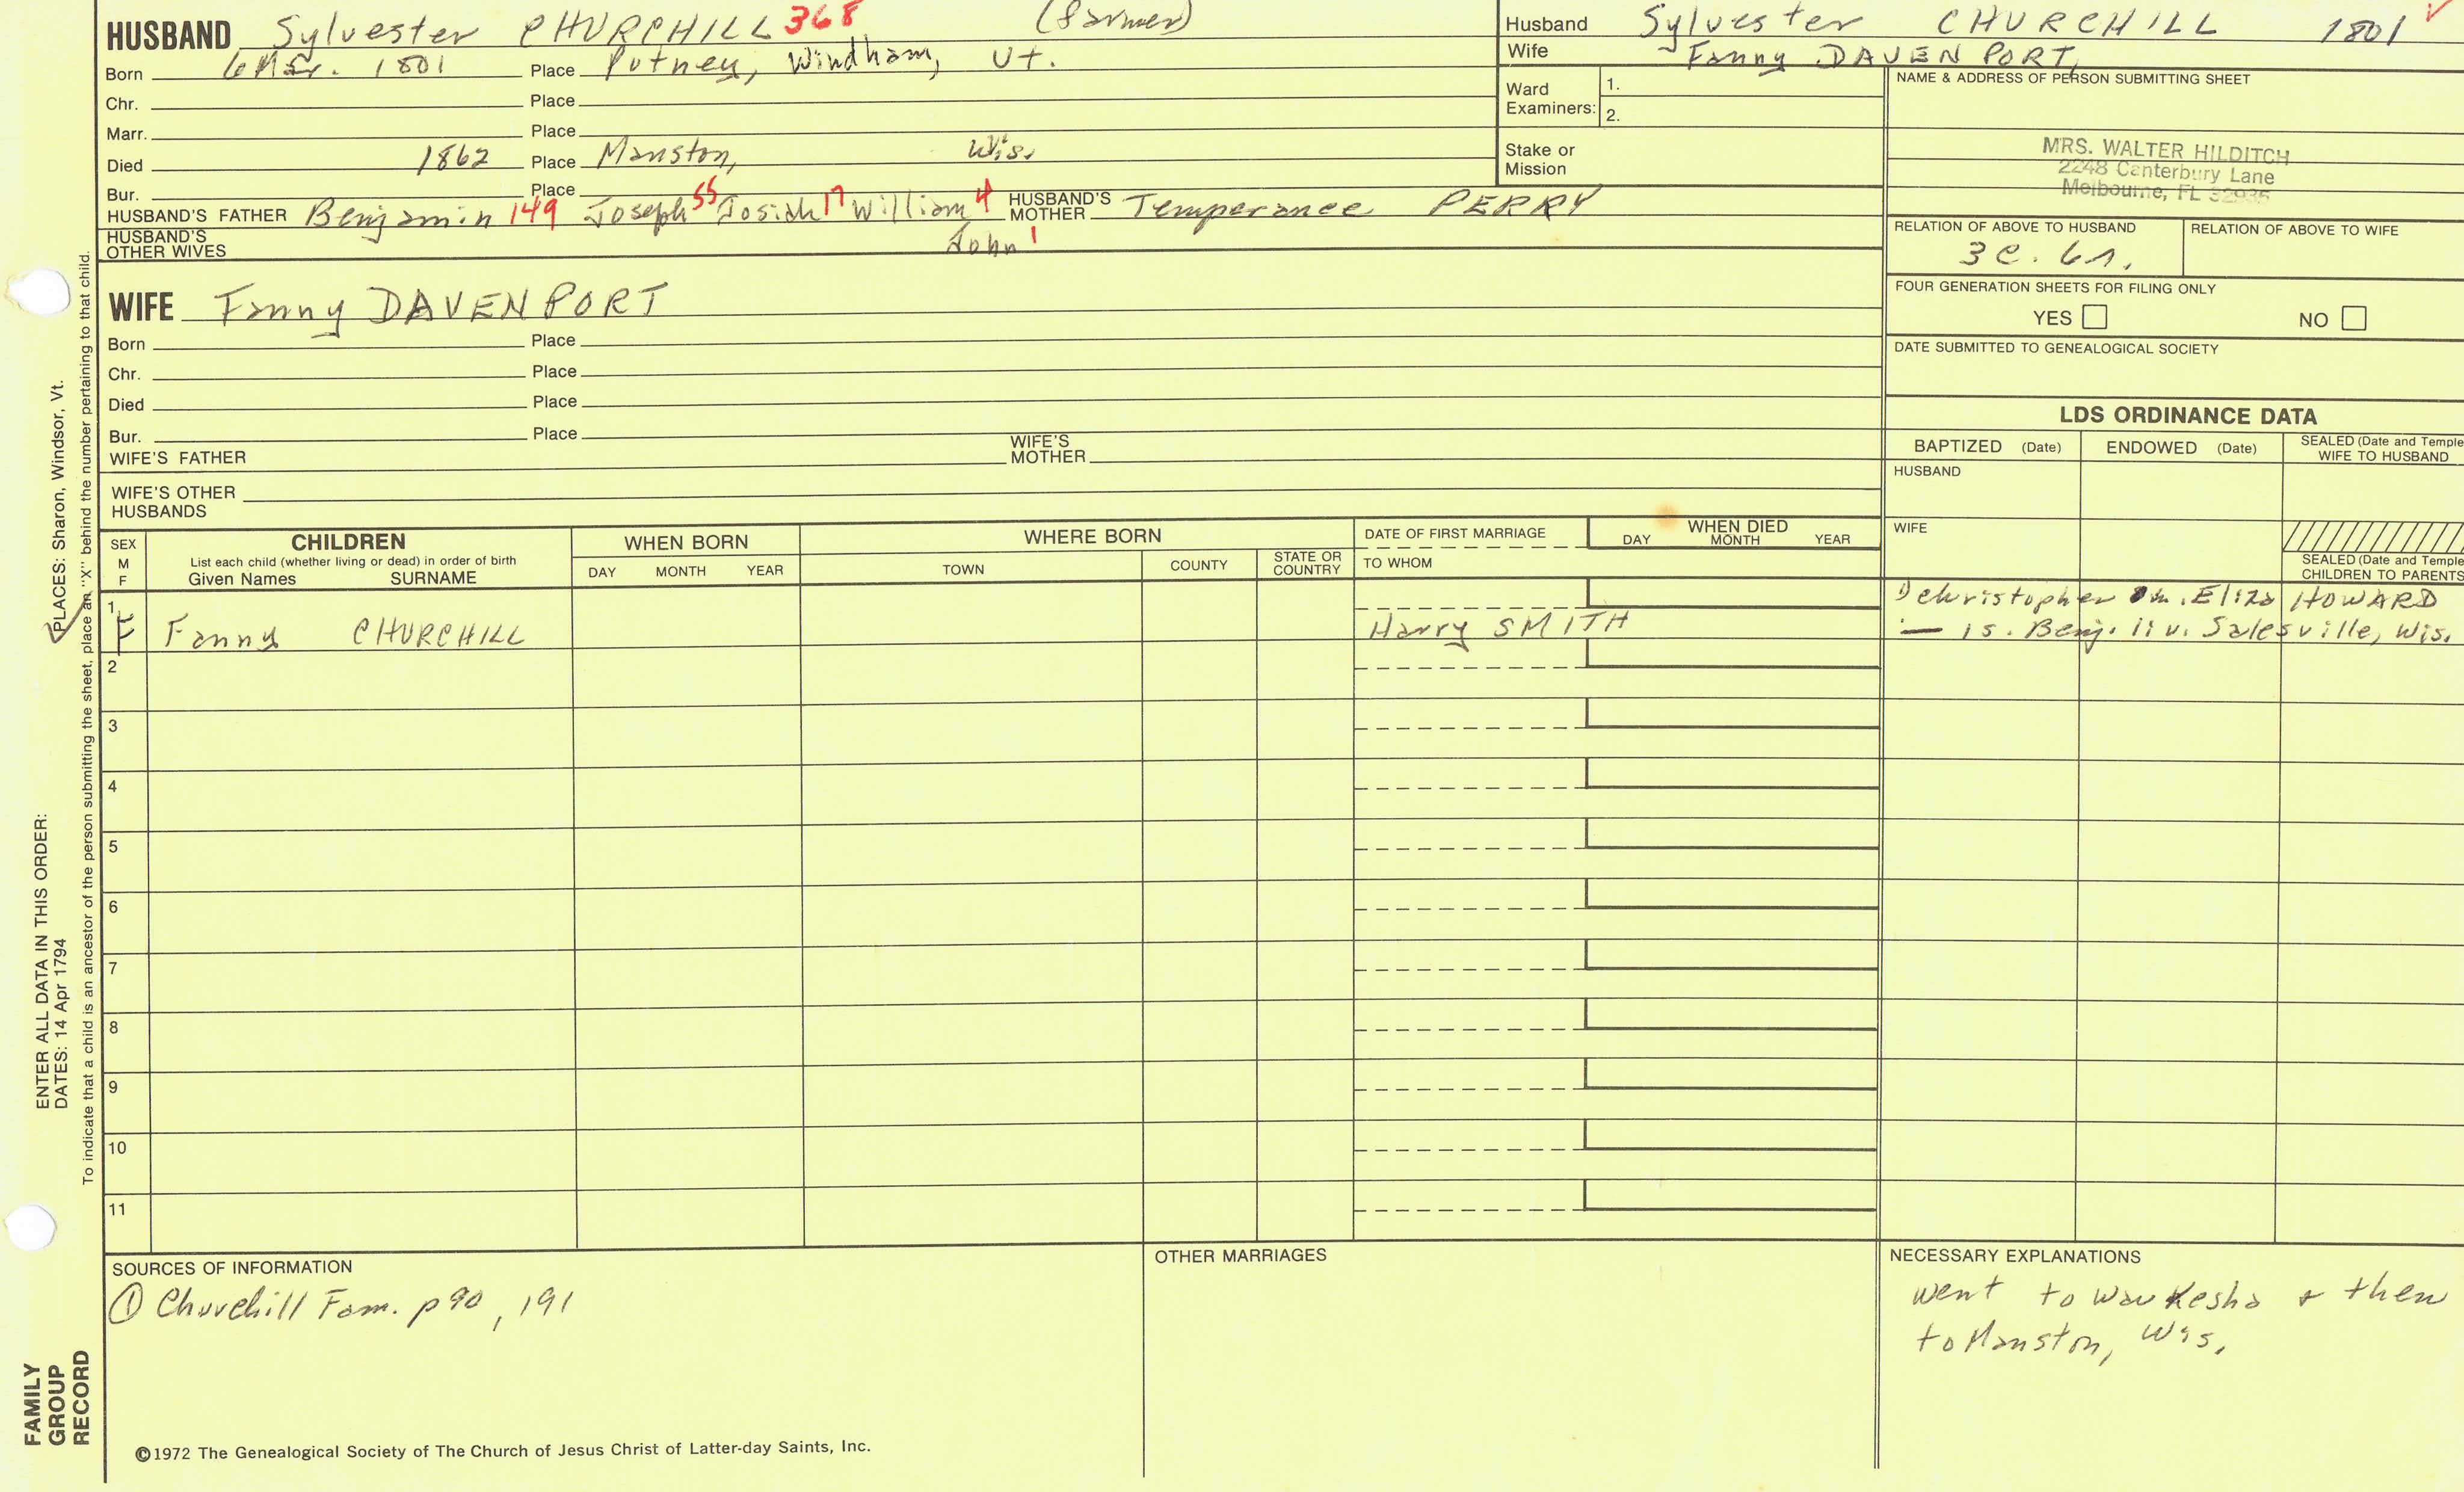 HUSBAND Sylvester CHURCHILL 368 (farmer)
Born 6 Mar. 1801 Place Putney, Windham, Vt.
Chr. Place
Marr. Place
Died 1862 Place Manston, Wis.
Bur. Place
HUSBAND'S FATHER Benjamin 149 Joseph 55 Josiah 17 William 4 HUSBAND'S MOTHER Temperance PERRY
HUSBAND'S OTHER WIVES John 1
WIFE Fanny DAVENPORT
Born Place
Chr. Place
Died Place
Bur. Place
WIFE'S FATHER WIFE'S MOTHER
WIFE'S OTHER HUSBANDS
Husband Sylvester CHURCHILL 1801
Wife Fanny DAVENPORT
Ward Examiners: 1.
2.
Stake or Mission
NAME & ADDRESS OF PERSON SUBMITTING SHEET
MRS. WALTER HILDITCH
2248 Canterbury Lane
Melbourne, FL 32935
RELATION OF ABOVE TO HUSBAND RELATION OF ABOVE TO WIFE
3c.
FOUR GENERATION SHEETS FOR FILING ONLY
YES NO
DATE SUBMITTED TO GENEALOGICAL SOCIETY
LDS ORDINANCE DATA
BAPTIZED (Date) ENDOWED (Date) SEALED (Date and Temple
WIFE TO HUSBAND
HUSBAND
WIFE
SEALED (Date and Temple
CHILDREN TO PARENTS
SEX M F
CHILDREN
List each child (whether living or dead) in order of birth
Given Names SURNAME
WHEN BORN
DAY MONTH YEAR
WHERE BORN
TOWN COUNTY STATE OR COUNTRY
DATE OF FIRST MARRIAGE
TO WHOM
WHEN DIED
DAY MONTH YEAR
1 F Fanny CHURCHILL Harry SMITH
christopher m. Eliza HOWARD
— is. Benj. liv. Salesville, Wis.
2
3
4
5
6
7
8
9
10
11
SOURCES OF INFORMATION
① Churchill Fam. p 90, 191
OTHER MARRIAGES
NECESSARY EXPLANATIONS
went to Waukesha & then
to Manston, Wis.
©1972 The Genealogical Society of The Church of Jesus Christ of Latter-day Saints, Inc.
FAMILY
GROUP
RECORD
ENTER ALL DATA IN THIS ORDER:
DATES: 14 Apr 1794
PLACES: Sharon, Windsor, Vt.
To indicate that a child is an ancestor of the person submitting the sheet, place an "X" behind the number pertaining to that child.